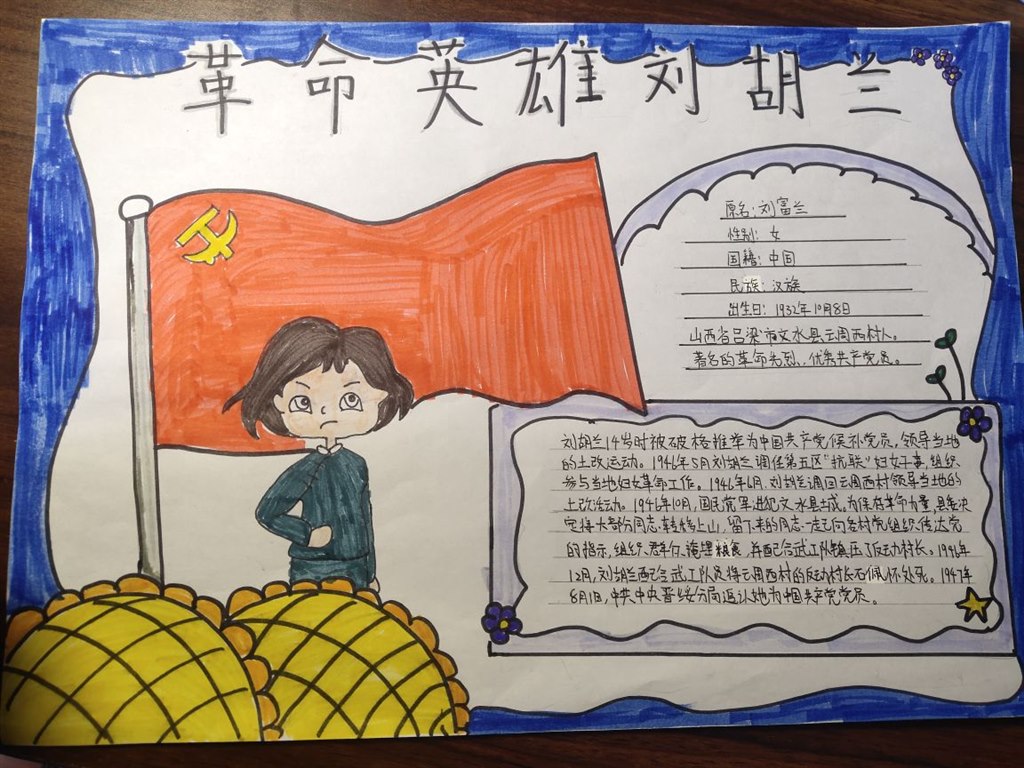 革命英雄刘胡兰
原名:刘富兰
性别:女
国籍:中国
民族:汉族
出生日:1932年10月8日
山西省吕梁市文水县云周西村人。
著名的革命先烈,优秀共产党员。
刘胡兰14岁时被破格推举为中国共产党候补党员,领导当地
的土改运动。1946年5月刘胡兰调任第五区"抗联"妇女干事,组织
参与当地妇女革命工作。1946年6月,刘胡兰调回云周西村领导当地的
土改活动。1946年10月,国民党军进犯文水县城,为保存革命力量,县委决
定将大部份同志转移上山,留下来的同志一起向各村党组织传达党
的指示,组织群众掩埋粮食,并配合武工队镇压了反动村长。1946年
12月,刘胡兰配合武工队员将云周西村的反动村长石佩怀处死。1947年
8月1日,中共中央晋绥分局追认她为中国共产党党员。